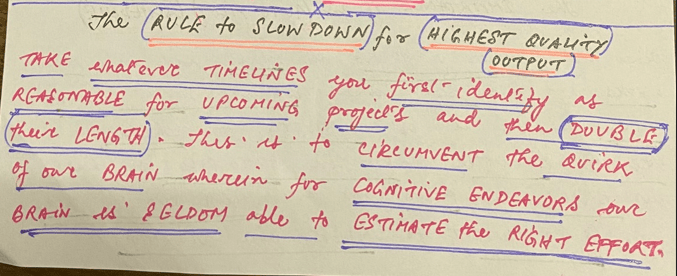 The RULE to SLOW DOWN for HIGHEST QUALITY
OUTPUT
TAKE whatever TIMELINES you first-identify as
REASONABLE for UPCOMING projects and then DOUBLE
their LENGTH. This is to CIRCUMVENT the QUIRK
of our BRAIN wherein for COGNITIVE ENDEAVORS our
BRAIN is SELDOM able to ESTIMATE the RIGHT EFFORT.